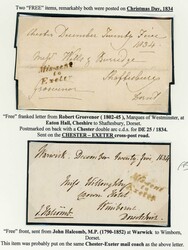 Two "FREE" items, remarkably both were posted on Christmas Day, 1834
Chester December Twenty Five
1834
Missrs Hills & Burridge
Shaftesbury
Dorset
Missent to
Exeter
Grosvenor
"Free" franked letter from Robert Grosvenor (1802-45), Marquess of Westminster, at
Eaton Hall, Cheshire to Shaftesbury, Dorset.
Postmarked on back with a Chester double arc c.d.s. for DE 25 / 1834.
Sent on the CHESTER – EXETER cross-post road.
Warwick. December Twenty five 1834
Miss Willoughby
Crown Hotel
Missent to
Exeter
Wimborne
Dorsetshire
"Free" front, sent from John Halcomb, M.P. (1790-1852) at Warwick to Wimborn,
Dorset.
This item was probably put on the same Chester-Exeter mail coach as the above letter